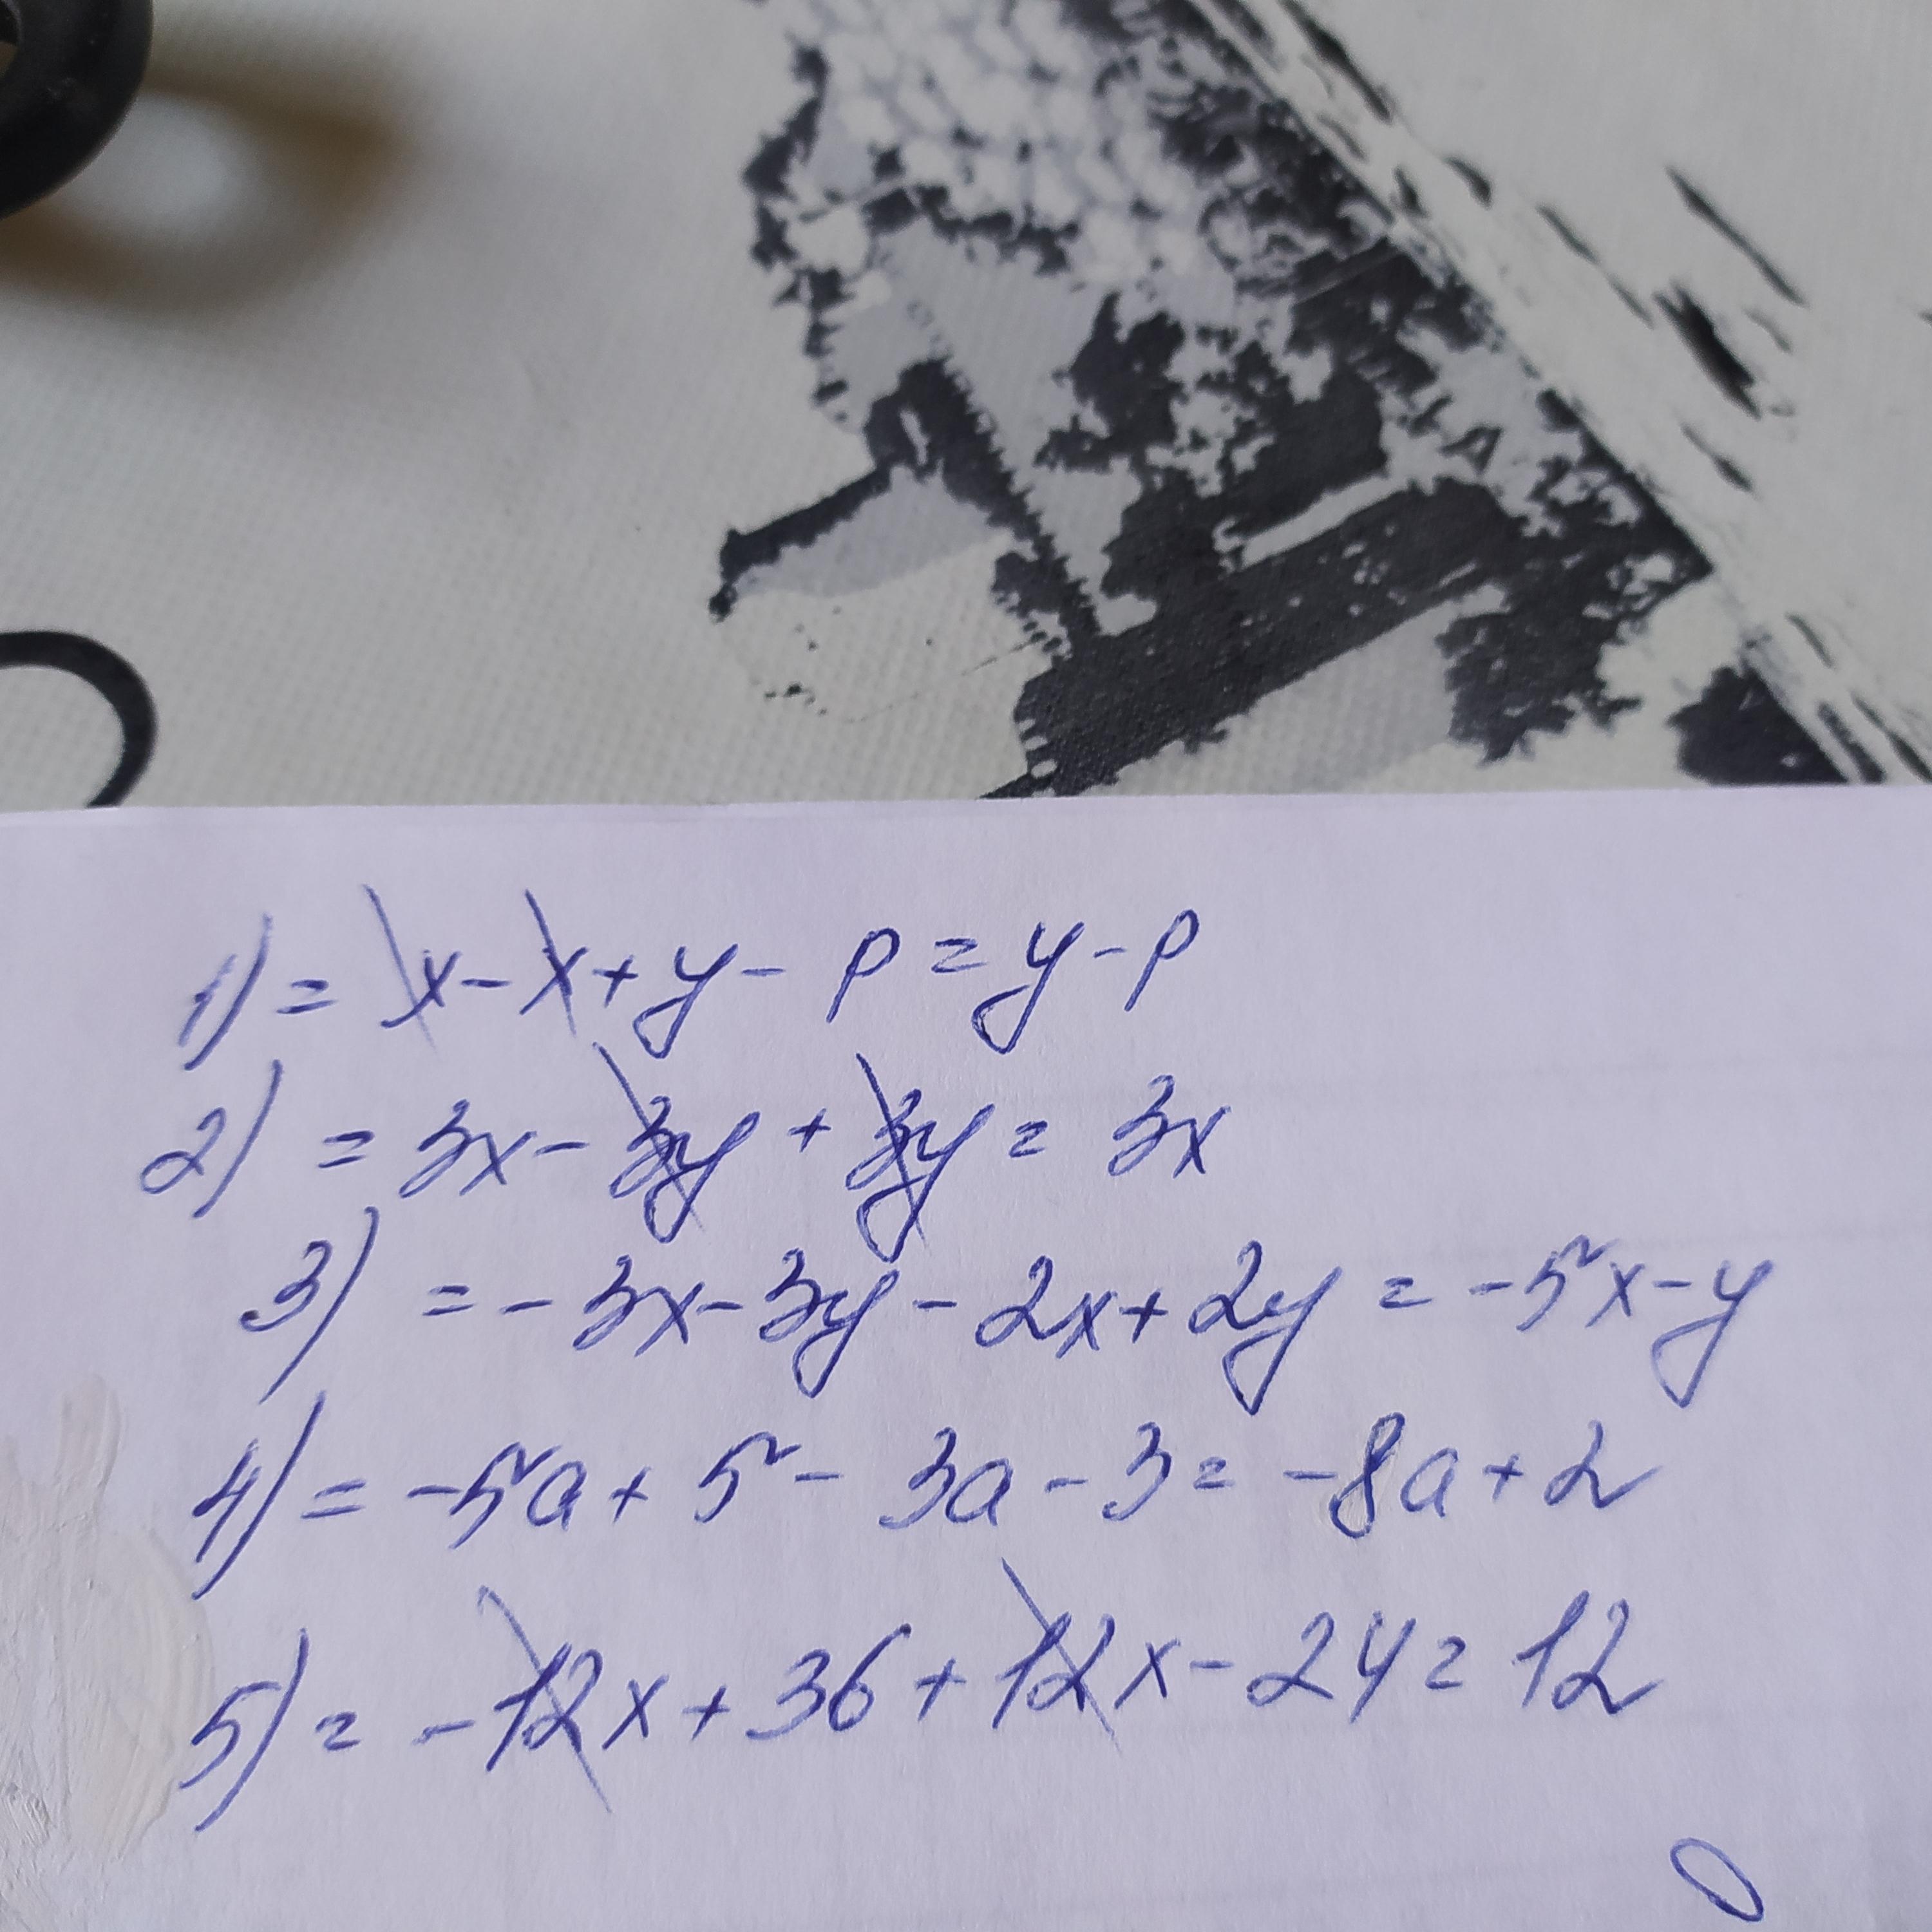 1) = x - x + y - p = y - p
2) = 3x - 3y + 3y = 3x
3) = - 3x - 3y - 2x + 2y = -5x - y
4) = -5a + 5 - 3a - 3 = -8a + 2
5) = -12x + 36 + 12x - 24 = 12